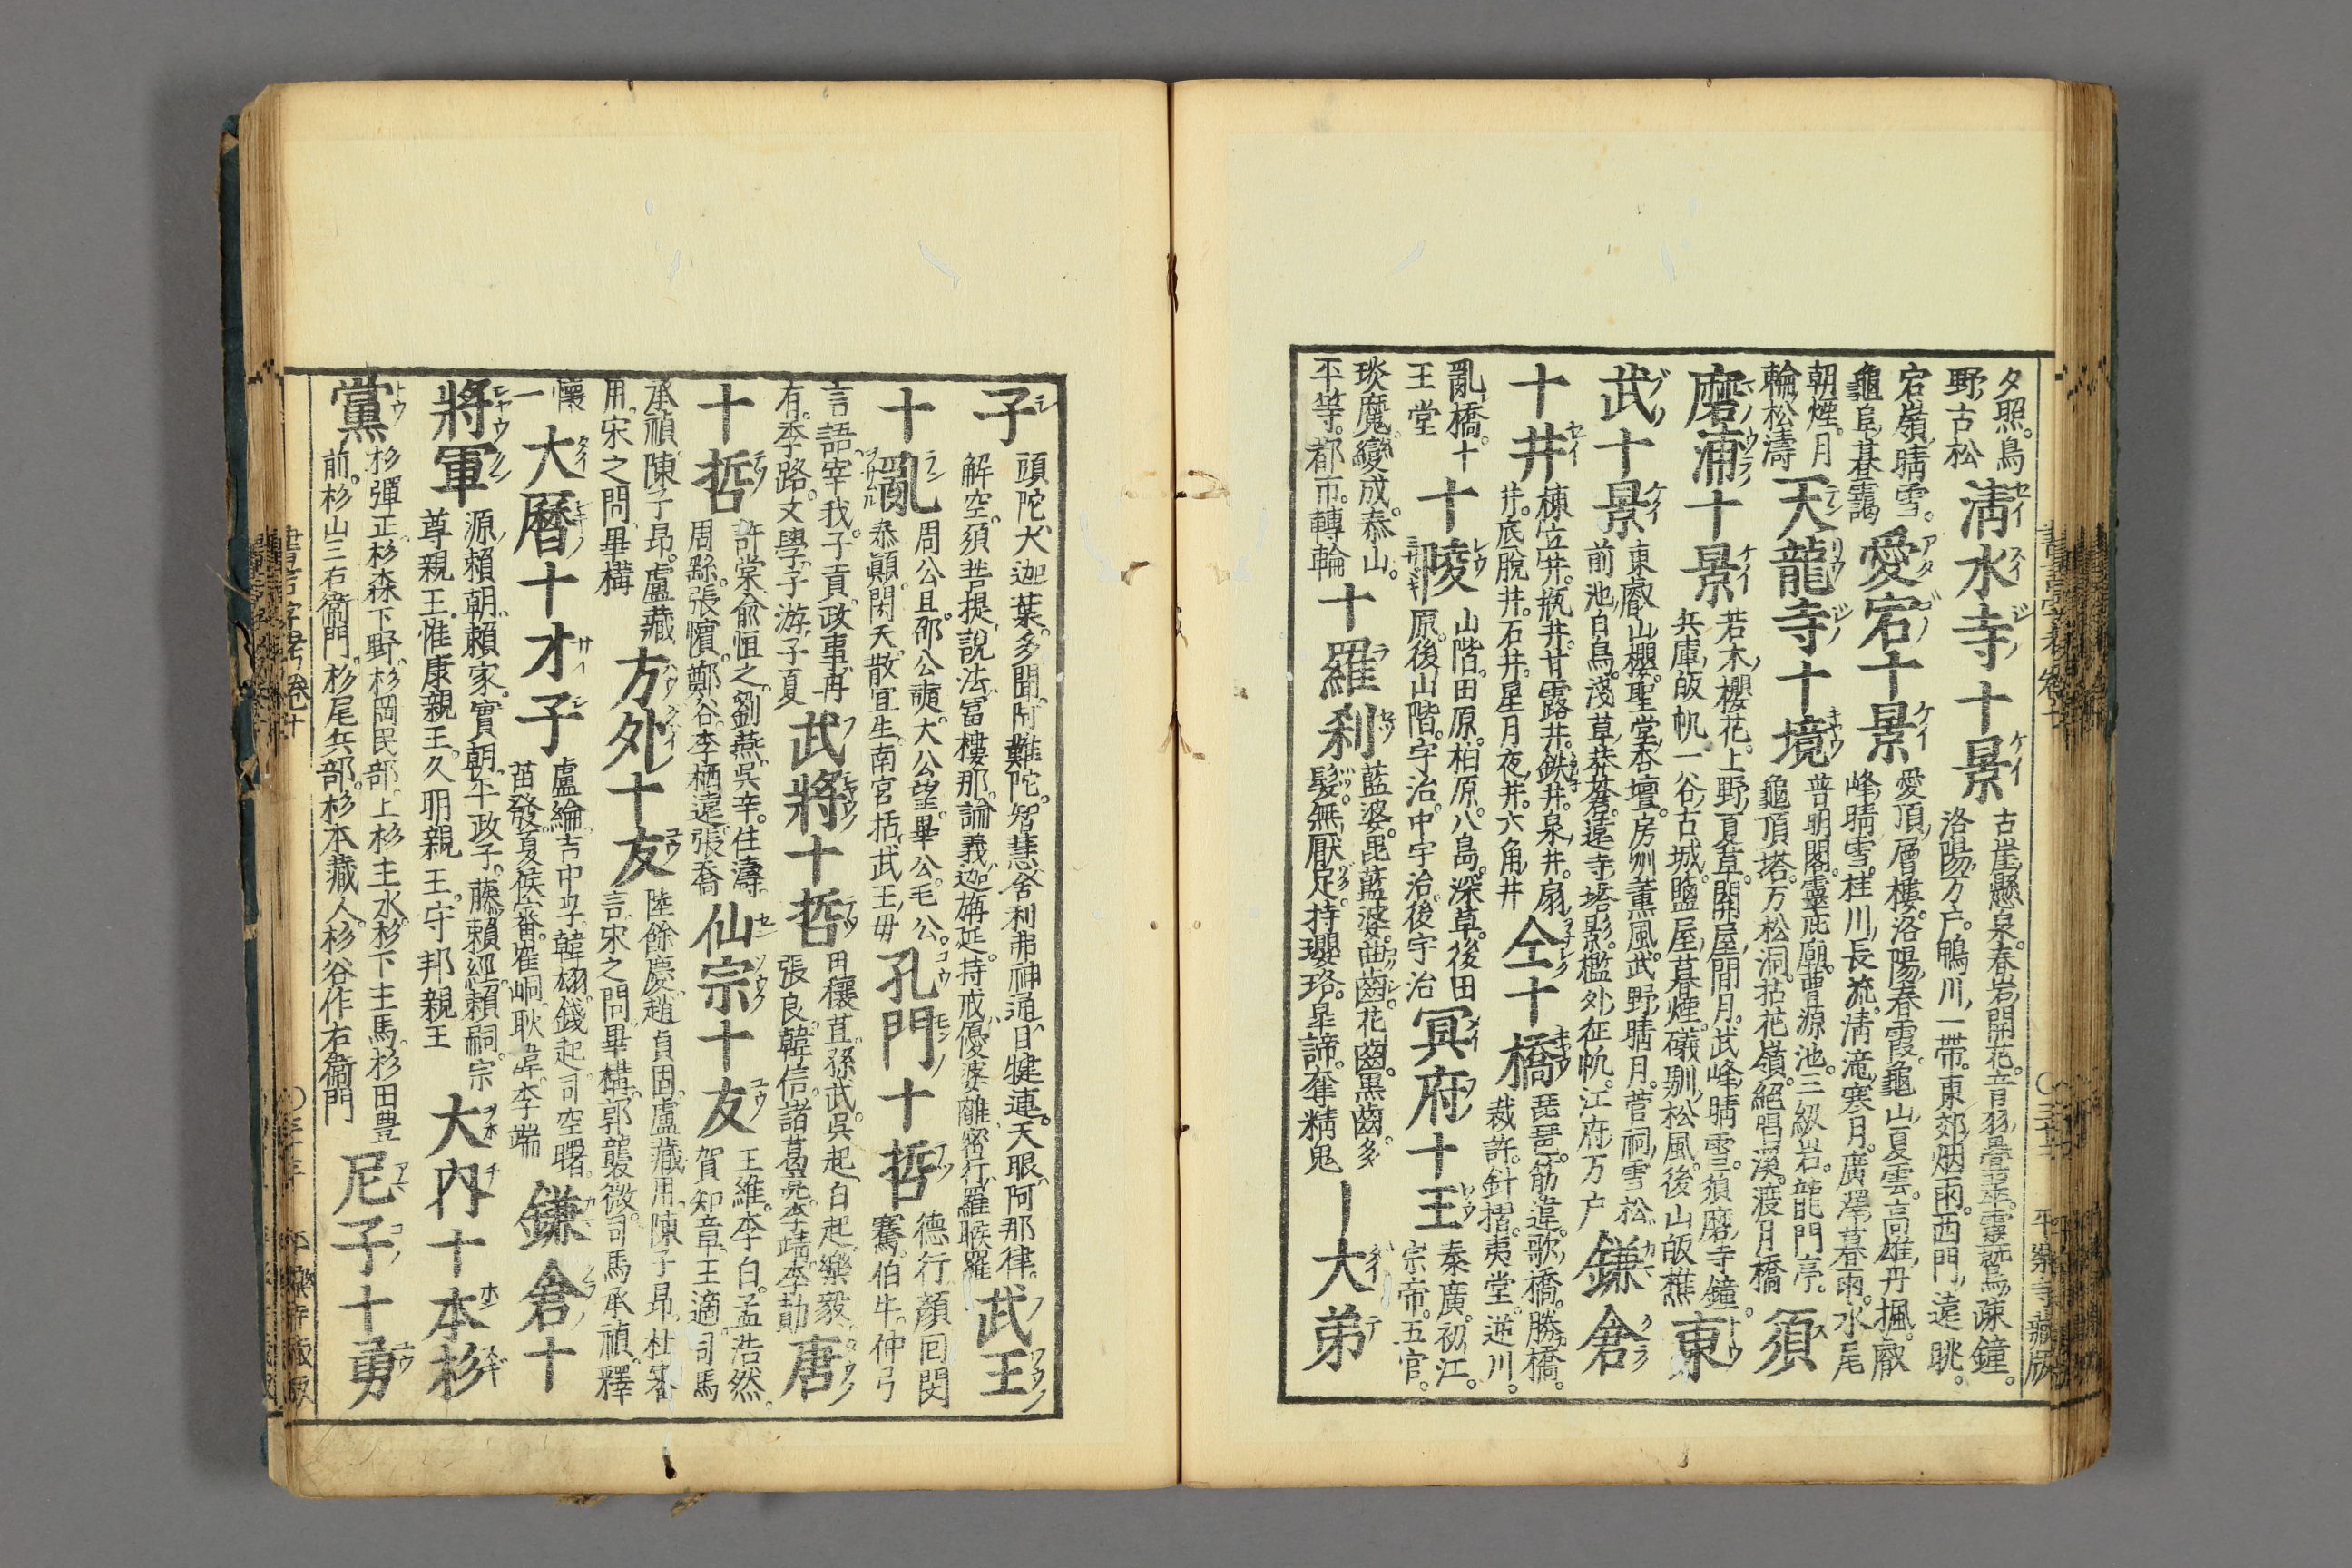 夕照。鳥
野古松
清水寺十景
古崖懸泉。春岩開花。音羽疊翠。靈鷲疎鐘。
洛陽万户。鴨川一帶。東郊烟雨。西門遠眺。
宕嶺晴雪。
龜阜暮靄
愛宕十景
愛頂層樓。洛陽春霞。龜山夏雲。高雄丹楓。
峰晴雪。桂川長流。清滝寒月。廣澤暮雨。水尾
朝煙。月
輪松濤
天龍寺十境
普明閣。靈庇廟。曹源池。三級岩。龍門亭。
龜頂塔。万松洞。拈花嶺。絕唱溪。渡月橋
須
磨浦十景
若木櫻花。上野夏草。關屋間月。武峰晴雪。須磨寺鐘。
兵庫皈帆。一谷古城。鹽屋暮煙。礒馴松風。後山皈樵
東
武十景
東叡山櫻。聖堂杏壇。房州薫風。武野晴月。菅祠雪松
前池白鳥。淺草茶莟。遠寺塔影。檻外征帆。江府万户
鎌倉
十井
棟立井。瓶井。甘露井。鉄井。泉井。扇
井。底脫井。石井。星月夜井。六角井
仝十橋
琵琶。筋違。歌橋。勝橋。
裁許。針摺。夷堂。逆川。
亂橋。十
王堂
十陵
山階。田原。柏原。八島。深草。後田
原。後山階。宇治。中宇治。後宇治
冥府十王
秦廣。初江。
宗帝。五官。
琰魔。變成。泰山。
平等。都市。轉輪
十羅刹
藍婆。毘藍婆。曲齒。花齒。黒齒。多
髮。無厭足。持瓔珞。皐諦。奪精鬼
｜大弟
子
頭陀大迦葉。多聞阿難陀。智慧舍利弗。神通目犍連。天眼阿那律。
解空須菩提。說法富樓那。論義迦旃延。持戒優婆離。密行羅睺羅
武王
十亂
周公旦。邵公奭。大公望。畢公。毛公。
泰顛。閎夭。散宜生。南宮括。武王毋
孔門十哲
德行顏回閔
騫。伯牛。仲弓
言語宰我。子貢。政事冉
有。季路。文學子游。子夏
武將十哲
田穰苴。孫武。吳起。白起。樂毅。
張良。韓信。諸葛亮。李靖。李勣
唐
十哲
許棠。兪恒之。劉燕。吳辛。住濤
周繇。張懫。鄭谷。李栖遠。張喬
仙宗十友
王維。李白。孟浩然。
賀知章。王適。司馬
承禎。陳子昂。盧藏
用。宋之問。畢構
方外十友
陸餘慶。趙貞固。盧藏用。陳子昂。杜審
言。宋之問。畢構。郭襲微。司馬承禎。釋
懷
一
大曆十才子
盧綸。吉中孚。韓翃。錢起。司空曙。
苗發。夏侯審。崔峒。耿湋。李端
鎌倉十
將軍
源賴朝。賴家。實朝。平政子。藤賴經。賴嗣。宗
尊親王。惟康親王。久明親王。守邦親王
大内十本杉
杉彈正。杉森下野。杉岡民部。上杉主水。杉下主馬。杉田豊
前。杉山三右衞門。杉尾兵部。杉本藏人。杉谷作右衞門
尼子十勇
黨
書言字考卷十
平樂寺藏版